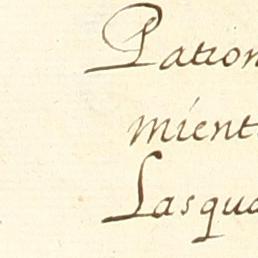 Pation
mient
Lasqua